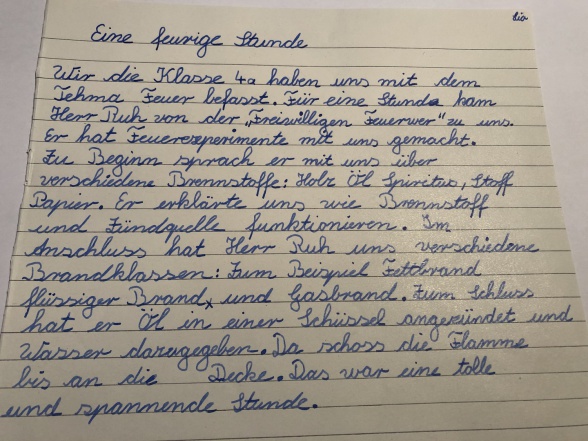 lia
Eine feurige Stunde
Wir die Klasse 4a haben uns mit dem
Tehma Feuer befasst. Für eine Stunde kam
Herr Ruh von der „Freiwilligen Feuerwer" zu uns.
Er hat Feuerexperimente mit uns gemacht.
Zu Beginn sprach er mit uns über
verschiedene Brennstoffe: Holz Öl Spiritus, Stoff
Papier. Er erklärte uns wie Brennstoff
und Zündquelle funktionieren. Im
Anschluss hat Herr Ruh uns verschiedene
Brandklassen: Zum Beispiel Fettbrand
flüssiger Brand, und Gasbrand. Zum Schluss
hat er Öl in einer Schüssel angezündet und
Wasser dazugegeben. Da schoss die Flamme
bis an die Decke. Das war eine tolle
und spannende Stunde.